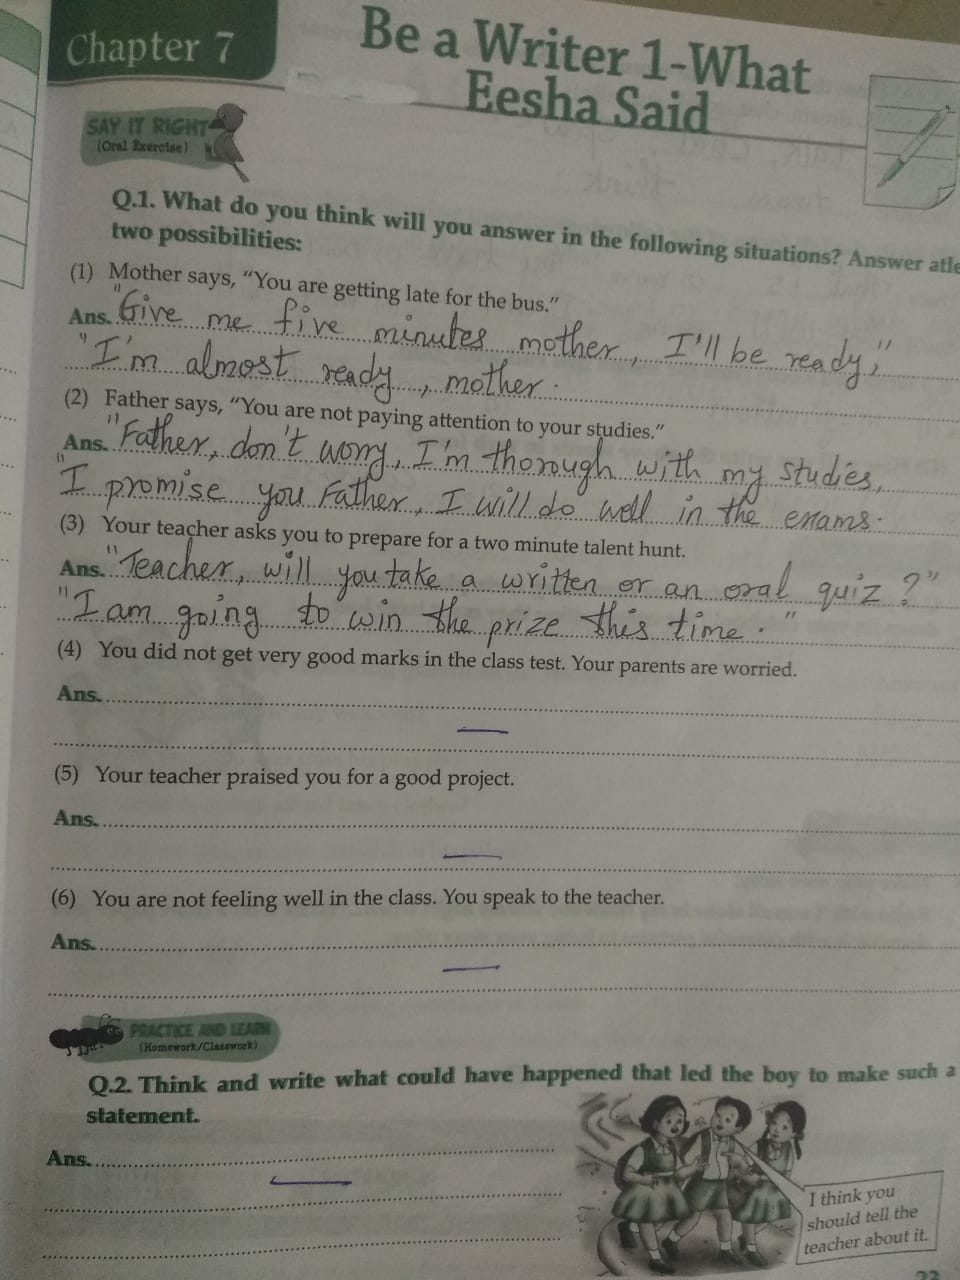 Chapter 7
Be a Writer 1-What
Eesha Said
SAY IT RIGHT
(Oral Exercise)
Q.1. What do you think will you answer in the following situations? Answer atle
two possibilities:
(1) Mother says, “You are getting late for the bus.”
Ans. "Give me five minutes mother, I'll be ready,"
"I'm almost ready, mother.
(2) Father says, “You are not paying attention to your studies.”
Ans. "Father, don't worry, I'm thorough with my studies,
"I promise you Father, I will do well in the exams.
(3) Your teacher asks you to prepare for a two minute talent hunt.
Ans. "Teacher, will you take a written or an oral quiz?"
"I am going to win the prize this time."
(4) You did not get very good marks in the class test. Your parents are worried.
Ans.
(5) Your teacher praised you for a good project.
Ans.
(6) You are not feeling well in the class. You speak to the teacher.
Ans.
PRACTICE AND LEARN
(Homework/Classwork)
Q.2. Think and write what could have happened that led the boy to make such a
statement.
Ans.
I think you
should tell the
teacher about it.